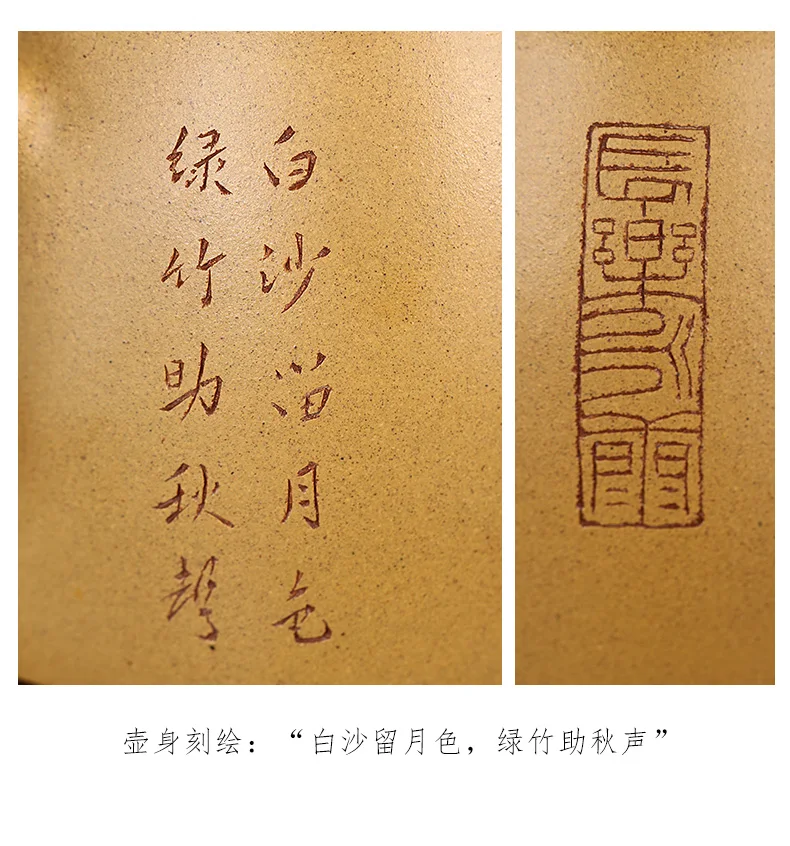 白沙留月色
绿竹助秋聲
長樂
壶身刻绘：“白沙留月色，绿竹助秋声”